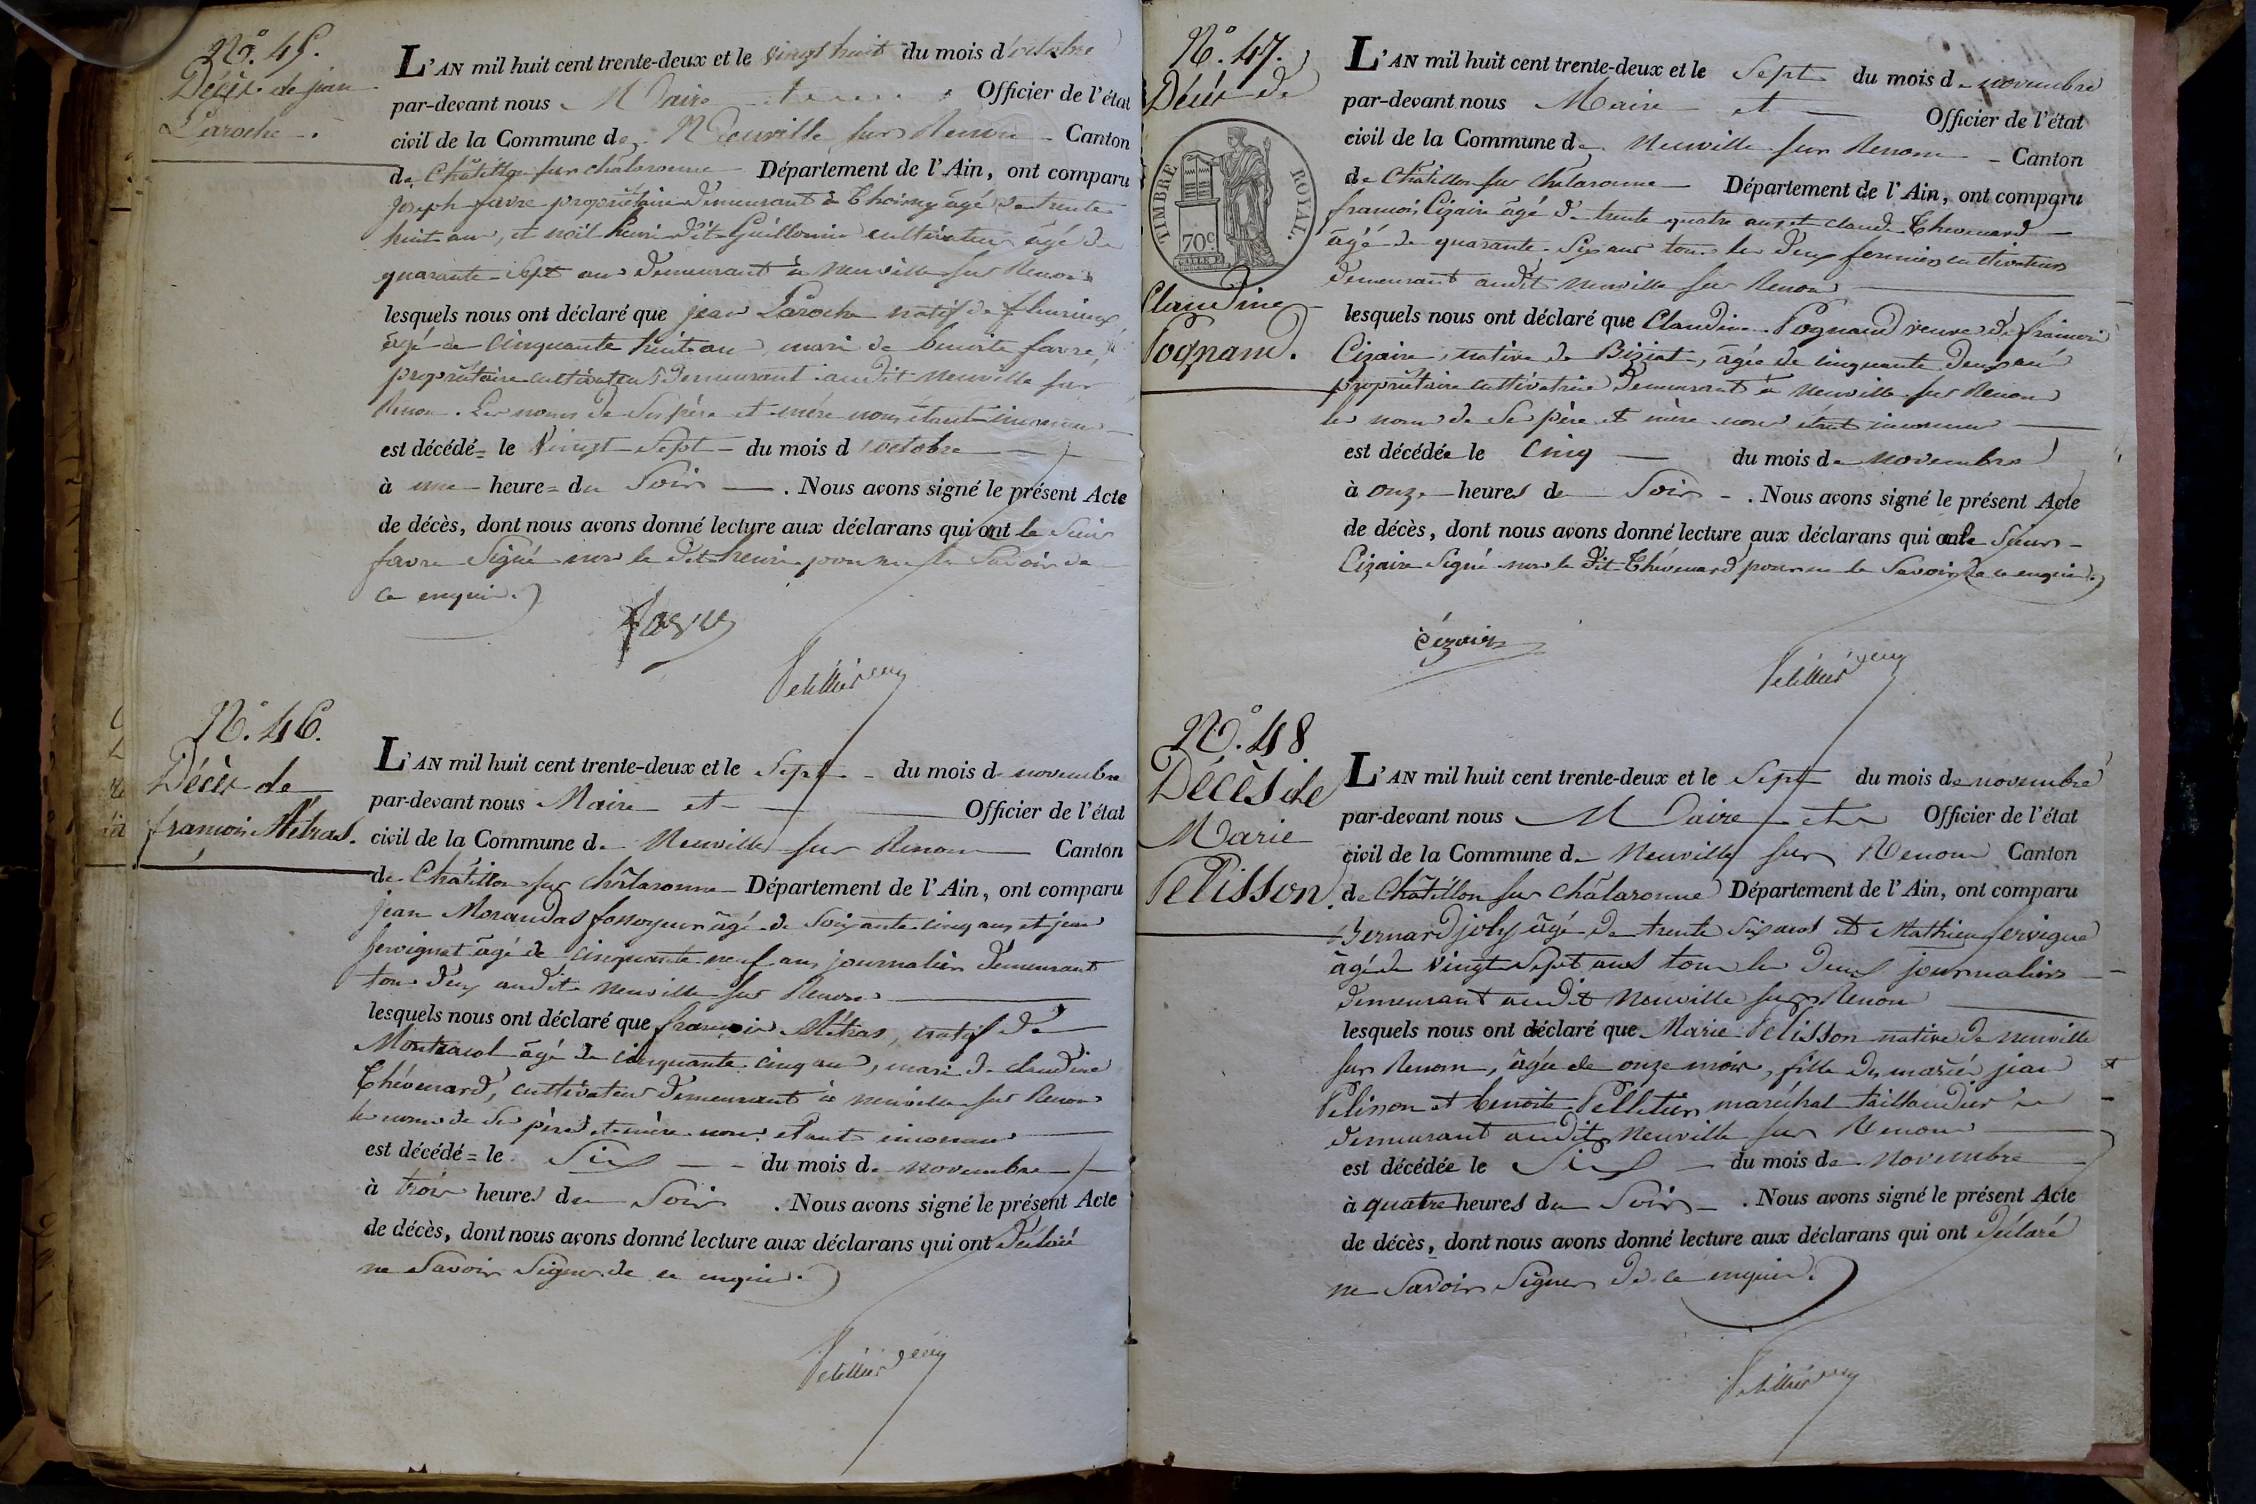 N.º 45.
Décès de jean
Laroche.
L'AN mil huit cent trente-deux et le vingt huit du mois d'octobre
par-devant nous Maire et Officier de l'état
civil de la Commune de Neuville sur Renom Canton
de Châtillon sur chalaronne Département de l'Ain, ont comparu
joseph favre propriétaire demeurant à Thoissey âgé de trente
huit ans, et noël henri dit Guillermin cultivateur âgé de
quarante sept ans demeurant à neuville sur Renom
lesquels nous ont déclaré que jean Laroche natif de fleurieux
âgé de cinquante huit ans mari de benoite favre,
propriétaire cultivateur demeurant audit neuville sur
Renom. Les noms de ses père et mère nous étant inconnus
est décédé = le vingt sept du mois d'octobre
à une heure = du Soir. Nous avons signé le présent Acte
de décès, dont nous avons donné lecture aux déclarans qui ont le Sieur
favre Signé non le dit henri pour ne le Savoir de
ce enquis.
favre
N.º 46.
Décès de
francois Métras.
L'AN mil huit cent trente-deux et le Sept du mois de novembre
par-devant nous Maire et Officier de l'état
civil de la Commune de Neuville sur Renom Canton
de Châtillon sur châlaronne Département de l'Ain, ont comparu
jean Morandas fossoyeur âgé de soixante cinq ans et jean
servignat âgé de cinquante neuf ans journalier demeurant
tous deux audit neuville sur Renom
lesquels nous ont déclaré que francois Métras, natif de
Montracol âgé de cinquante cinq ans, mari de claudine
Thévenard, cultivateur demeurant à neuville sur Renom
les noms de ses père et mère nous étant inconnus
est décédé = le Six du mois de novembre
à trois heures du Soir. Nous avons signé le présent Acte
de décès, dont nous avons donné lecture aux déclarans qui ont Déclaré
ne Savoir Signer de ce enquis.
N.º 47.
Décès de
TIMBRE ROYAL.
70c
Claudine
Pognand.
L'AN mil huit cent trente-deux et le Sept du mois de novembre
par-devant nous Maire et Officier de l'état
civil de la Commune de Neuville sur Renom Canton
de Châtillon sur Chalaronne Département de l'Ain, ont comparu
francois Cizaire âgé de trente quatre ans et claude Thevenard
âgé de quarante six ans tous les deux fermiers cultivateurs
demeurant audit neuville sur Renom
lesquels nous ont déclaré que Claudine Pognand veuve de francois
Cizaire, native de Biziat, âgée de cinquante deux ans
propriétaire cultivatrice demeurant à neuville sur Renom
les noms de ses père et mère nous étant inconnus
est décédée le Cinq du mois de novembre
à onze heures du Soir. Nous avons signé le présent Acte
de décès, dont nous avons donné lecture aux déclarans qui ont le Sieur
Cizaire Signé non le dit Thévenard pour ne le Savoir de ce enquis.
N.º 48.
Décès de
Marie
Pelisson.
L'AN mil huit cent trente-deux et le Sept du mois de novembre
par-devant nous Maire et Officier de l'état
civil de la Commune de Neuville sur Renom Canton
de Châtillon sur Châlaronne Département de l'Ain, ont comparu
Bernard joly âgé de trente six ans et Mathieu servigna
âgé de vingt sept ans tous les deux journaliers
demeurant audit Neuville sur Renom
lesquels nous ont déclaré que Marie Pelisson native de neuville
sur Renom, âgée de onze mois, fille des mariés jean
Pelisson et benoite Pelletier maréchal taillandier
demeurant audit Neuville sur Renom
est décédée le Six du mois de Novembre
à quatre heures du Soir. Nous avons signé le présent Acte
de décès, dont nous avons donné lecture aux déclarans qui ont Déclaré
ne Savoir Signer de ce enquis.